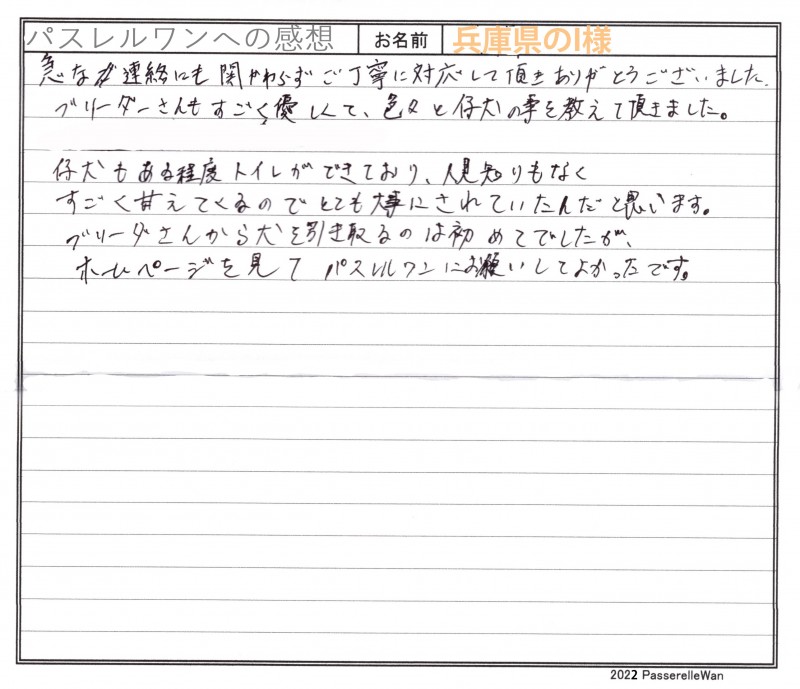 パスレルワンへの感想 お名前 兵庫県のI様
急な連絡にも関わらずご丁寧に対応して頂きありがとうございました。
ブリーダーさんもすごく優しくて、色々と仔犬の事を教えて頂きました。
仔犬もある程度トイレができており、人見知りもなく
すごく甘えてくるのでとても大事にされていたんだと思います。
ブリーダさんから犬を引き取るのは初めてでしたが、
ホームページを見てパスレルワンにお願いしてよかったです。
2022 PasserelleWan